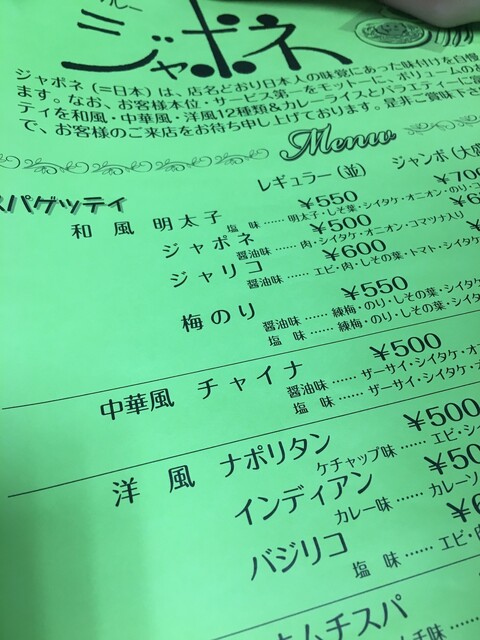 カレー
ジャポネ
ジャポネ(=日本)は、店名どおり日本人の味覚にあった味付けを自慢
ます。なお、お客様本位・サービス第一をモットーに、ボリュームのあ
ティを和風・中華風・洋風12種類&カレーライスとバラエティに富
で、お客様のご来店をお待ち申し上げております。是非ご賞味下さ
Menu
レギュラー(並) ジャンボ(大盛
スパゲッティ
和風 明太子 ¥550 ¥700
塩味……明太子・しそ葉・シイタケ・オニオン・のり・コ
ジャポネ ¥500
醤油味……肉・シイタケ・オニオン・コマツナ入り
ジャリコ ¥600
醤油味……エビ・肉・しその葉・トマト・シイタケ・
梅のり ¥550
醤油味……練梅・のり・しその葉・シイタ
塩味……練梅・のり・しその葉・シイタ
中華風 チャイナ ¥500
醤油味……ザーサイ・シイタケ・オ
塩味……ザーサイ・シイタケ・
洋風 ナポリタン ¥500
ケチャップ味……エビ・シ
インディアン ¥50
カレー味……カレーソ
バジリコ
塩味……エビ・肉
キムチスパ